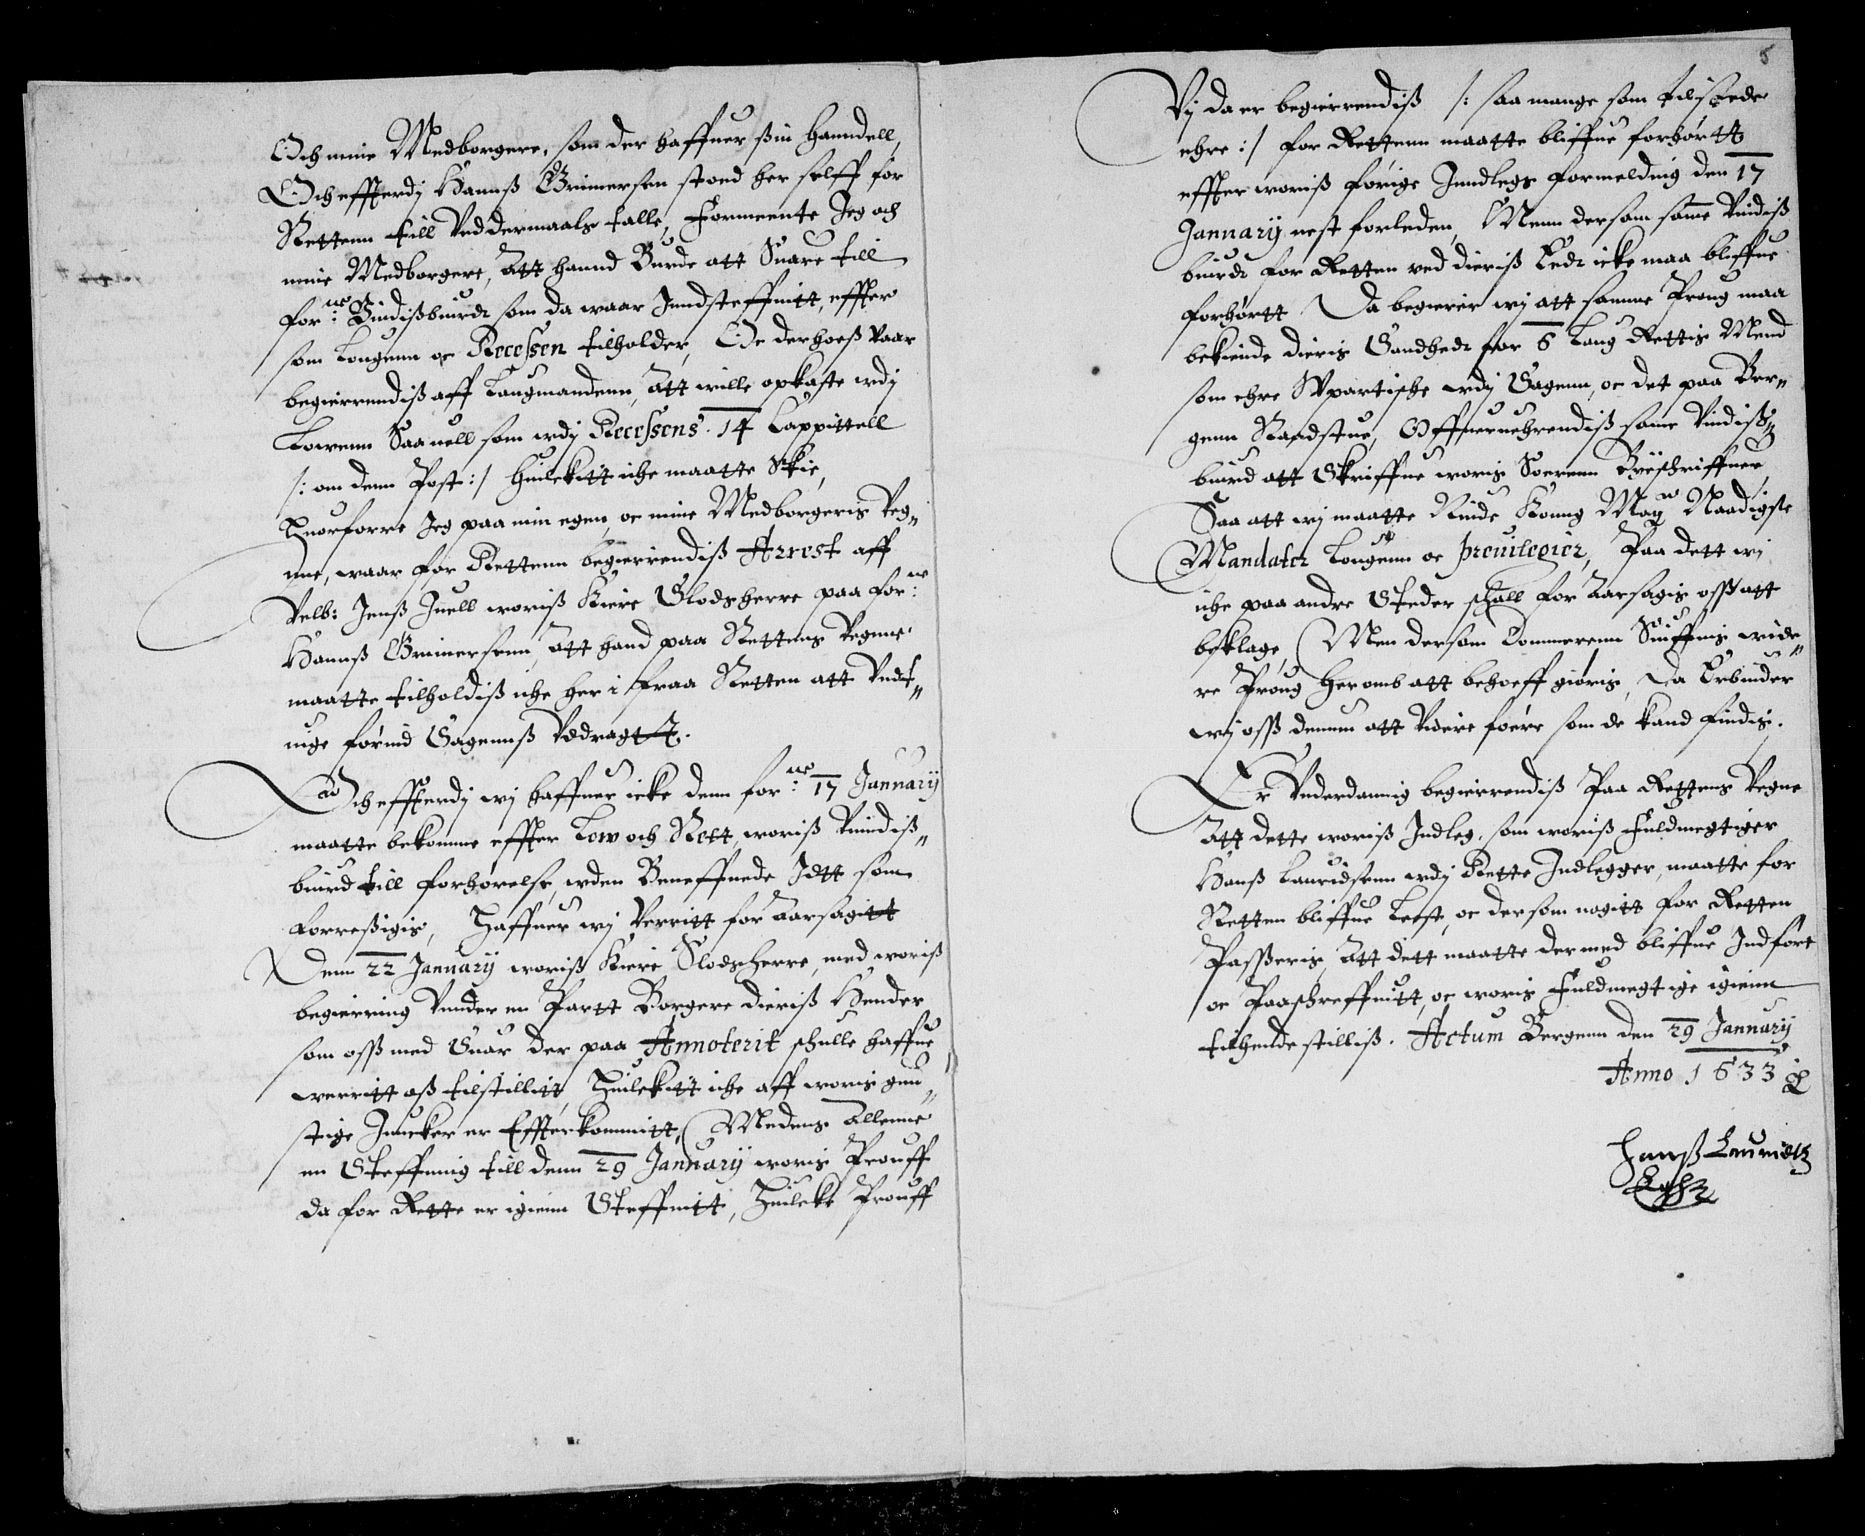 Och mine Medborgere, som der haffuer ßin Hanndell,
Och effterdj Hannß Grimersen stoed her selff for
Rettenn till Veddermaals talle, Formeente Jeg och
mine Medborgere, Att hannd Burde att Suare till
for:ne Vindißbiurd som da waar Jndsteffnitt, effter
som Lougenn oc Recessen tilholder, Oc derhoeß vaar
begierendiß aff Laugmandenn, Att wille opkaste wdj
Lowenn Saa uell som wdj Recessens 14 Cappittell
/: om denn Post :/ Huilckitt iche maatte Skie,
Huorforre Jeg paa min egen, oc mine Medborgeris Veg„
nne, waar for Rettenn begierrendiß Arrest aff
Velb: Jenß Juell woriß Kiere Slodsherre paa for:ne
Hannß Grimersenn, Att hand paa Rettens Vegnne
maatte tilholdiß iche her i fraa Retten att Vndt„
uige förind Sagennß Vddragtt.
Och effterdj wj haffuer icke denn for:ne 17 January
maatte bekomme effter Low och Rett, woriß Vindiß„
biurd till forhørelse, wden Beneffnede Jdtt som
forreßigis, Haffuer wj Verritt for Aarsagitt
Denn 22 January woriß Kiere Slodsherre, med woriß
begierring Vnnder en Partt Borgere dieriß Hender
som osß med Suar der paa Annoterit schulle haffue
werritt oß tilstillitt, Huilckitt iche aff woris gun„
stige Juncker er Effterkommitt, Medens Allenne
en Steffning till denn 29 January woris Prouff
da for Rette er igienn Steffnitt, Huilcke Prouff
5
Vj da er begierrendiß /: saa mange som tilstede
ehre :/ for Rettenn maatte bliffue forhørtt
effter woriß forige Jnndlegs formelding den 17
January nest forleden, Menn dersom samme Vindiß
biurdt for Retten ved dieriß Eedt icke maa bliffue
forhørtt Da begierer wj att samme Proug maa
bekiende dieris Sandhedt for 6 Laug Rettis Mend
som ehre Wpartische wdj Sagenn, oc det paa Ber„
genn Raadstue, Offueruehrendiß same Vindiß„
biurd att Skriffue woris Soerenn Byeschriffuer,
Saa att wj maatte Niude Konng May:ts Naadigste
Mandater Lougenn oc preuilegier, Paa dett wj
iche paa andre Steder schall for Aarsagis osß att
beklage, Men dersom Commerenn Siuffnis wide„
re Proug her omb att behoeff giøris, Da Erbiuder
wj osß dennum att Viere foere som de kand findis.
Er Vnderdannig begierrendiß Paa Rettens Vegne
Att dette woriß Jndleg, som woriß Fuldmegtiger
Hanß Lauridsenn wdj Rette Jndlegger, maatte for
Retten bliffue Lesst, oc dersom nogitt for Retten
Passeris, Att dett maatte dermed bliffue Jndført
oc Paaschreffuitt, oc woris Fuldmegtige igienn
tilhende stilliß. Actum Bergenn den 29 January
Anno 1633
Hannß Lauridtz